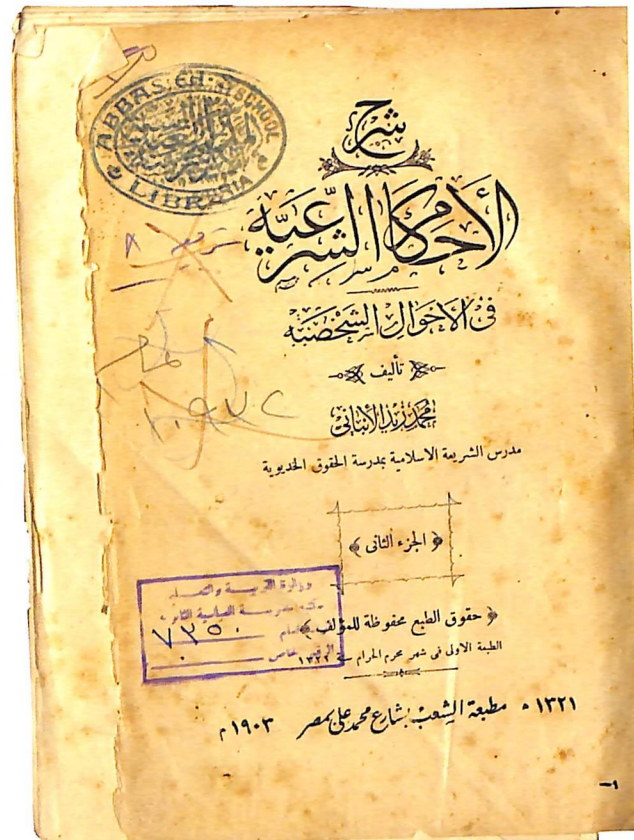 ABBAS. CH. ST SCHOOL
LIBRARIA
شرح
الأحكام الشرعية
فى الأحوال الشخصية
تأليف
محمد زيد الأبيانى
مدرس الشريعة الاسلامية بمدرسة الحقوق الخديوية
﴿ الجزء الثانى ﴾
﴿ حقوق الطبع محفوظة للمؤلف ﴾
الطبعة الاولى فى شهر محرم الحرام سنة ١٣٢٢
وزارة التربية
٧٣٥٠
خاص
١٣٢١ ه مطبعة الشعب بشارع محمد على بمصر ١٩٠٣ م